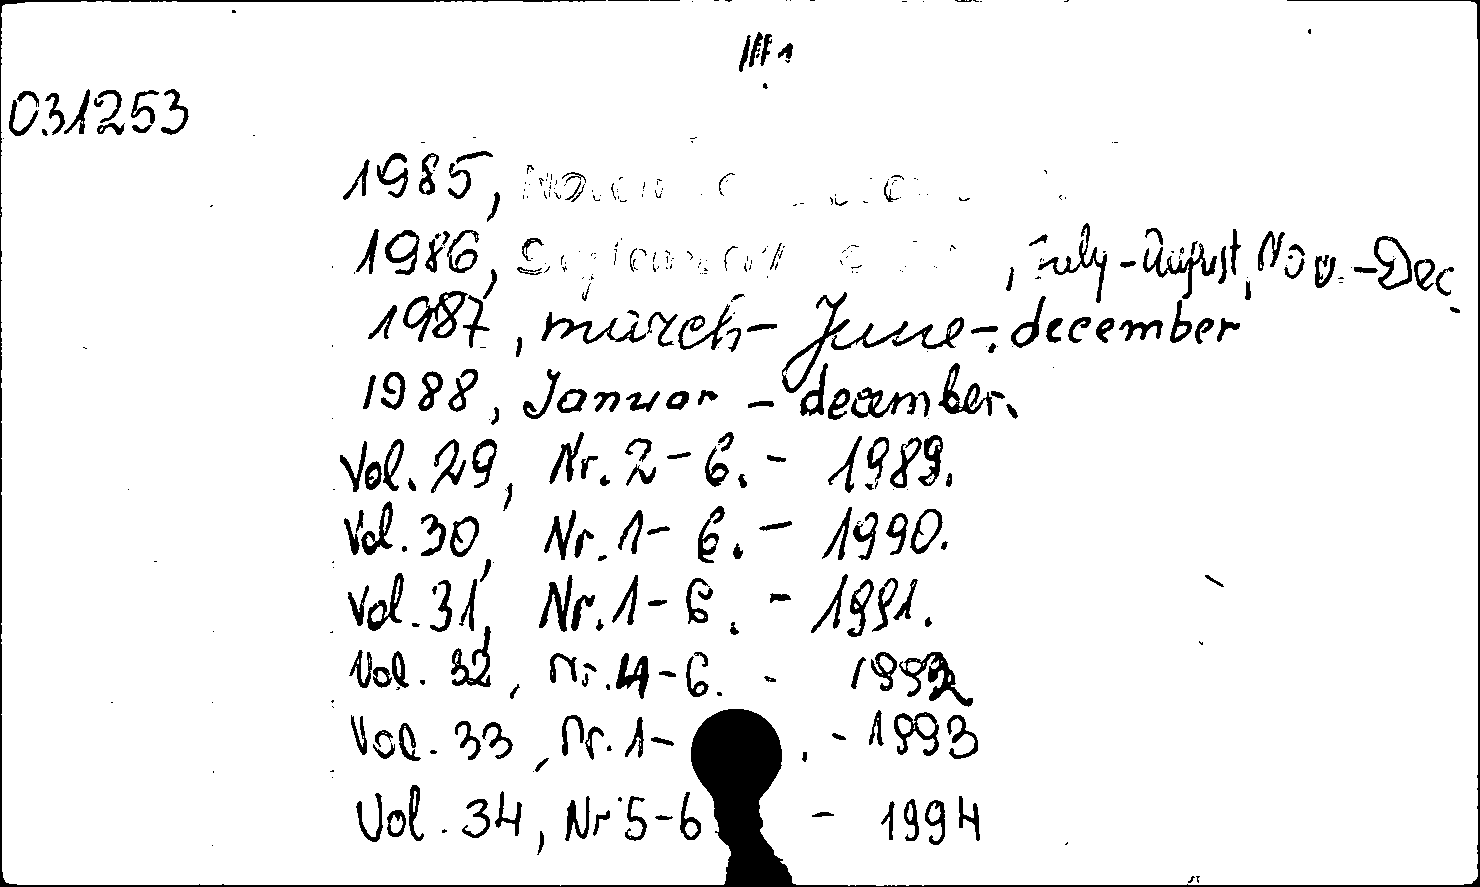 III 1
031253
1985,
1986, July-August, Nov.-Dec.
1987, march-June-december
1988, Januar - december.
Vol. 29, Nr. 2-6. - 1989.
Vol. 30, Nr. 1-6. - 1990.
Vol. 31, Nr. 1-6. - 1991.
Vol. 32, Nr. 4-6. - 1992
Vol. 33, Nr. 1- . - 1993
Vol. 34, Nr 5-6 - 1994